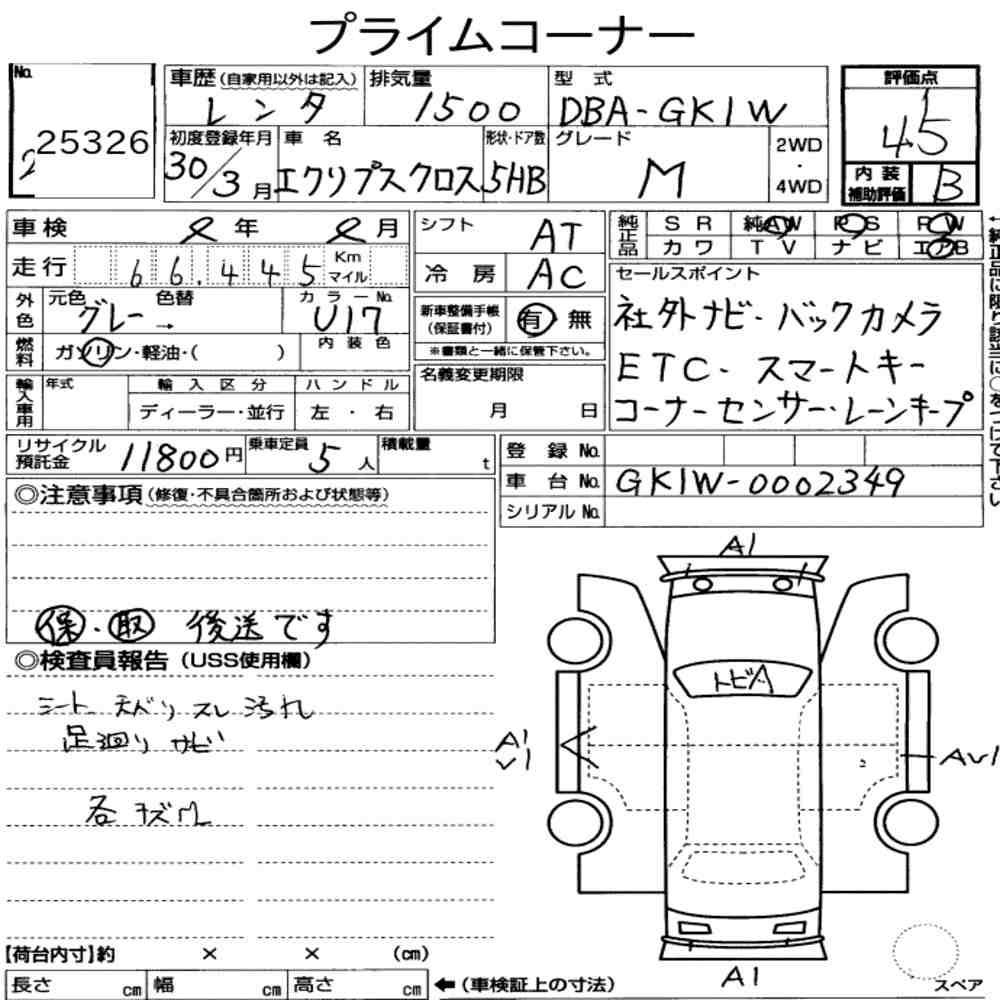 プライムコーナー
No. 25326
車歴(自家用以外は記入) レンタ
排気量 1500
型式 DBA-GK1W
評価点 4.5
初度登録年月 30/3月
車名 エクリプスクロス
形状・ドア数 5HB
グレード M
2WD・4WD
内装補助評価 B
車検 年 月
走行 66,445 Km マイル
シフト AT
冷房 AC
純正品 SR 純AW PS PW
カワ TV ナビ エアB
←純正品に限り該当に○をつけて下さい
外色 元色 グレー→ 色替
カラーNo. U17
内装色
燃料 ガソリン・軽油・( )
新車整備手帳(保証書付) 有 無
※書類と一緒に保管下さい。
セールスポイント
社外ナビ・バックカメラ
ETC・スマートキー
コーナーセンサー・レーンキープ
輸入車用 年式 輸入区分 ハンドル
ディーラー・並行 左・右
名義変更期限
月 日
リサイクル預託金 11800円
乗車定員 5人
積載量 t
登録No.
車台No. GK1W-0002349
シリアルNo.
◎注意事項(修復・不具合箇所および状態等)
保・取 後送です
◎検査員報告(USS使用欄)
シート 天バリ スレ 汚れ
足廻り サビ
各キズ
A1
トビA
A1
AU1
A1
【荷台内寸】約 × × (cm)
長さ cm 幅 cm 高さ cm
←(車検証上の寸法)
スペア